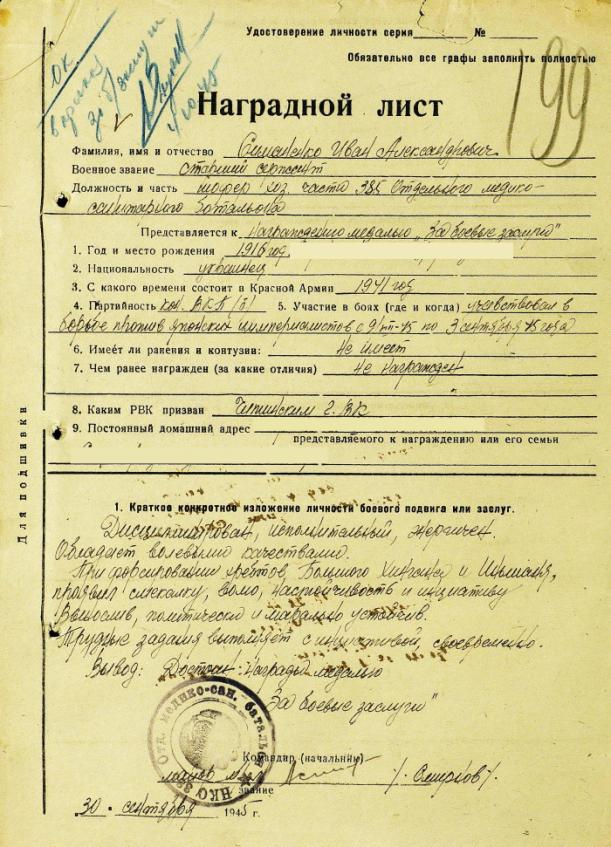 Удостоверение личности серия №
Обязательно все графы заполнять полностью
ОК
199
Наградной лист
Фамилия, имя и отчество Семаненко Иван Александрович
Военное звание старший сержант
Должность и часть шофер хоз части 385 Отдельного медико-
санитарного батальона
Представляется к награждению медалью „За боевые заслуги"
1. Год и место рождения 1916 год.
2. Национальность украинец
3. С какого времени состоит в Красной Армии 1941 год
4. Партийность кан. ВКП(б) 5. Участие в боях (где и когда) участвовал в
борьбе против японских империалистов с 9/VIII-45 по 3 сентября 45 года
6. Имеет ли ранения и контузии: не имеет
7. Чем ранее награжден (за какие отличия) не награжден
8. Каким РВК призван Читинским г. ВК
9. Постоянный домашний адрес
представляемого к награждению или его семьи
Для подшивки
1. Краткое конкретное изложение личности боевого подвига или заслуг.
Дисциплинирован, исполнительный, энергичен.
Обладает волевыми качествами.
При форсировании хребтов Большого Хингана и
проявил смекалку, волю, настойчивость и инициативу
Вынослив, политически и морально устойчив.
Трудные задания выполняет с инициативой своевременно.
Вывод: Достоин награды медалью
„За боевые заслуги"
Отд. медико-сан. батальон НКО
Командир (начальник)
майор м/с /Смирнов/
звание
30 · сентября 1945 г